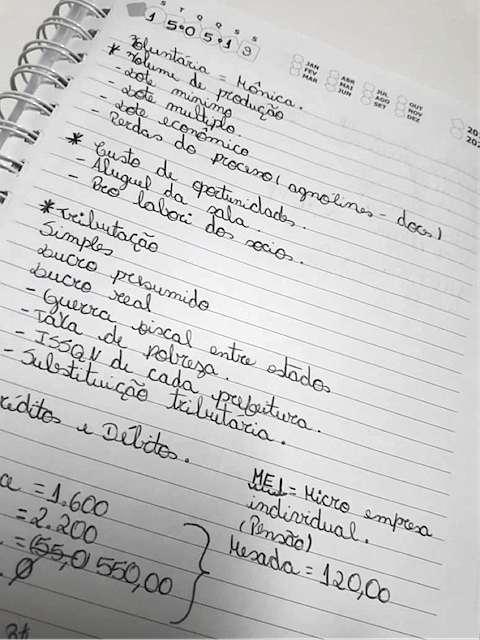 S T Q Q S S
15.05.19
JAN
FEV
MAR
ABR
MAI
JUN
JUL
AGO
SET
OUT
NOV
DEZ
Voluntária = Mônica.
* Volume de produção
- Lote mínimo
- Lote multiplo.
- Lote econômico
- Perdas do processo (agnolines - doces)
* Custo de oportunidades.
- Aluguel da sala.
- Pro labori dos socios.
* Tributação
Simples
Lucro presumido
Lucro real
- Guerra fiscal entre estados
- Taxa de pobreza.
- ISSQN de cada prefeitura.
- Substituição tributária.
réditos e Débitos.
a = 1.600
= 2.200
= (55,0) 550,00
. Ø
MEI = Micro empresa
individual.
(Pensão)
Mesada = 120,00